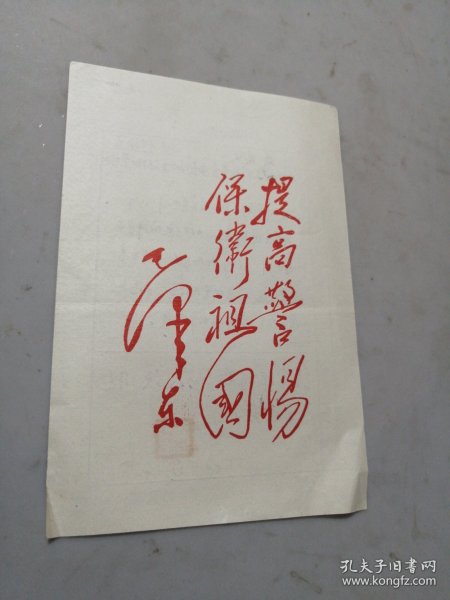 提高警惕
保衛祖國
毛澤东
孔夫子旧书网
www.kongfz.com